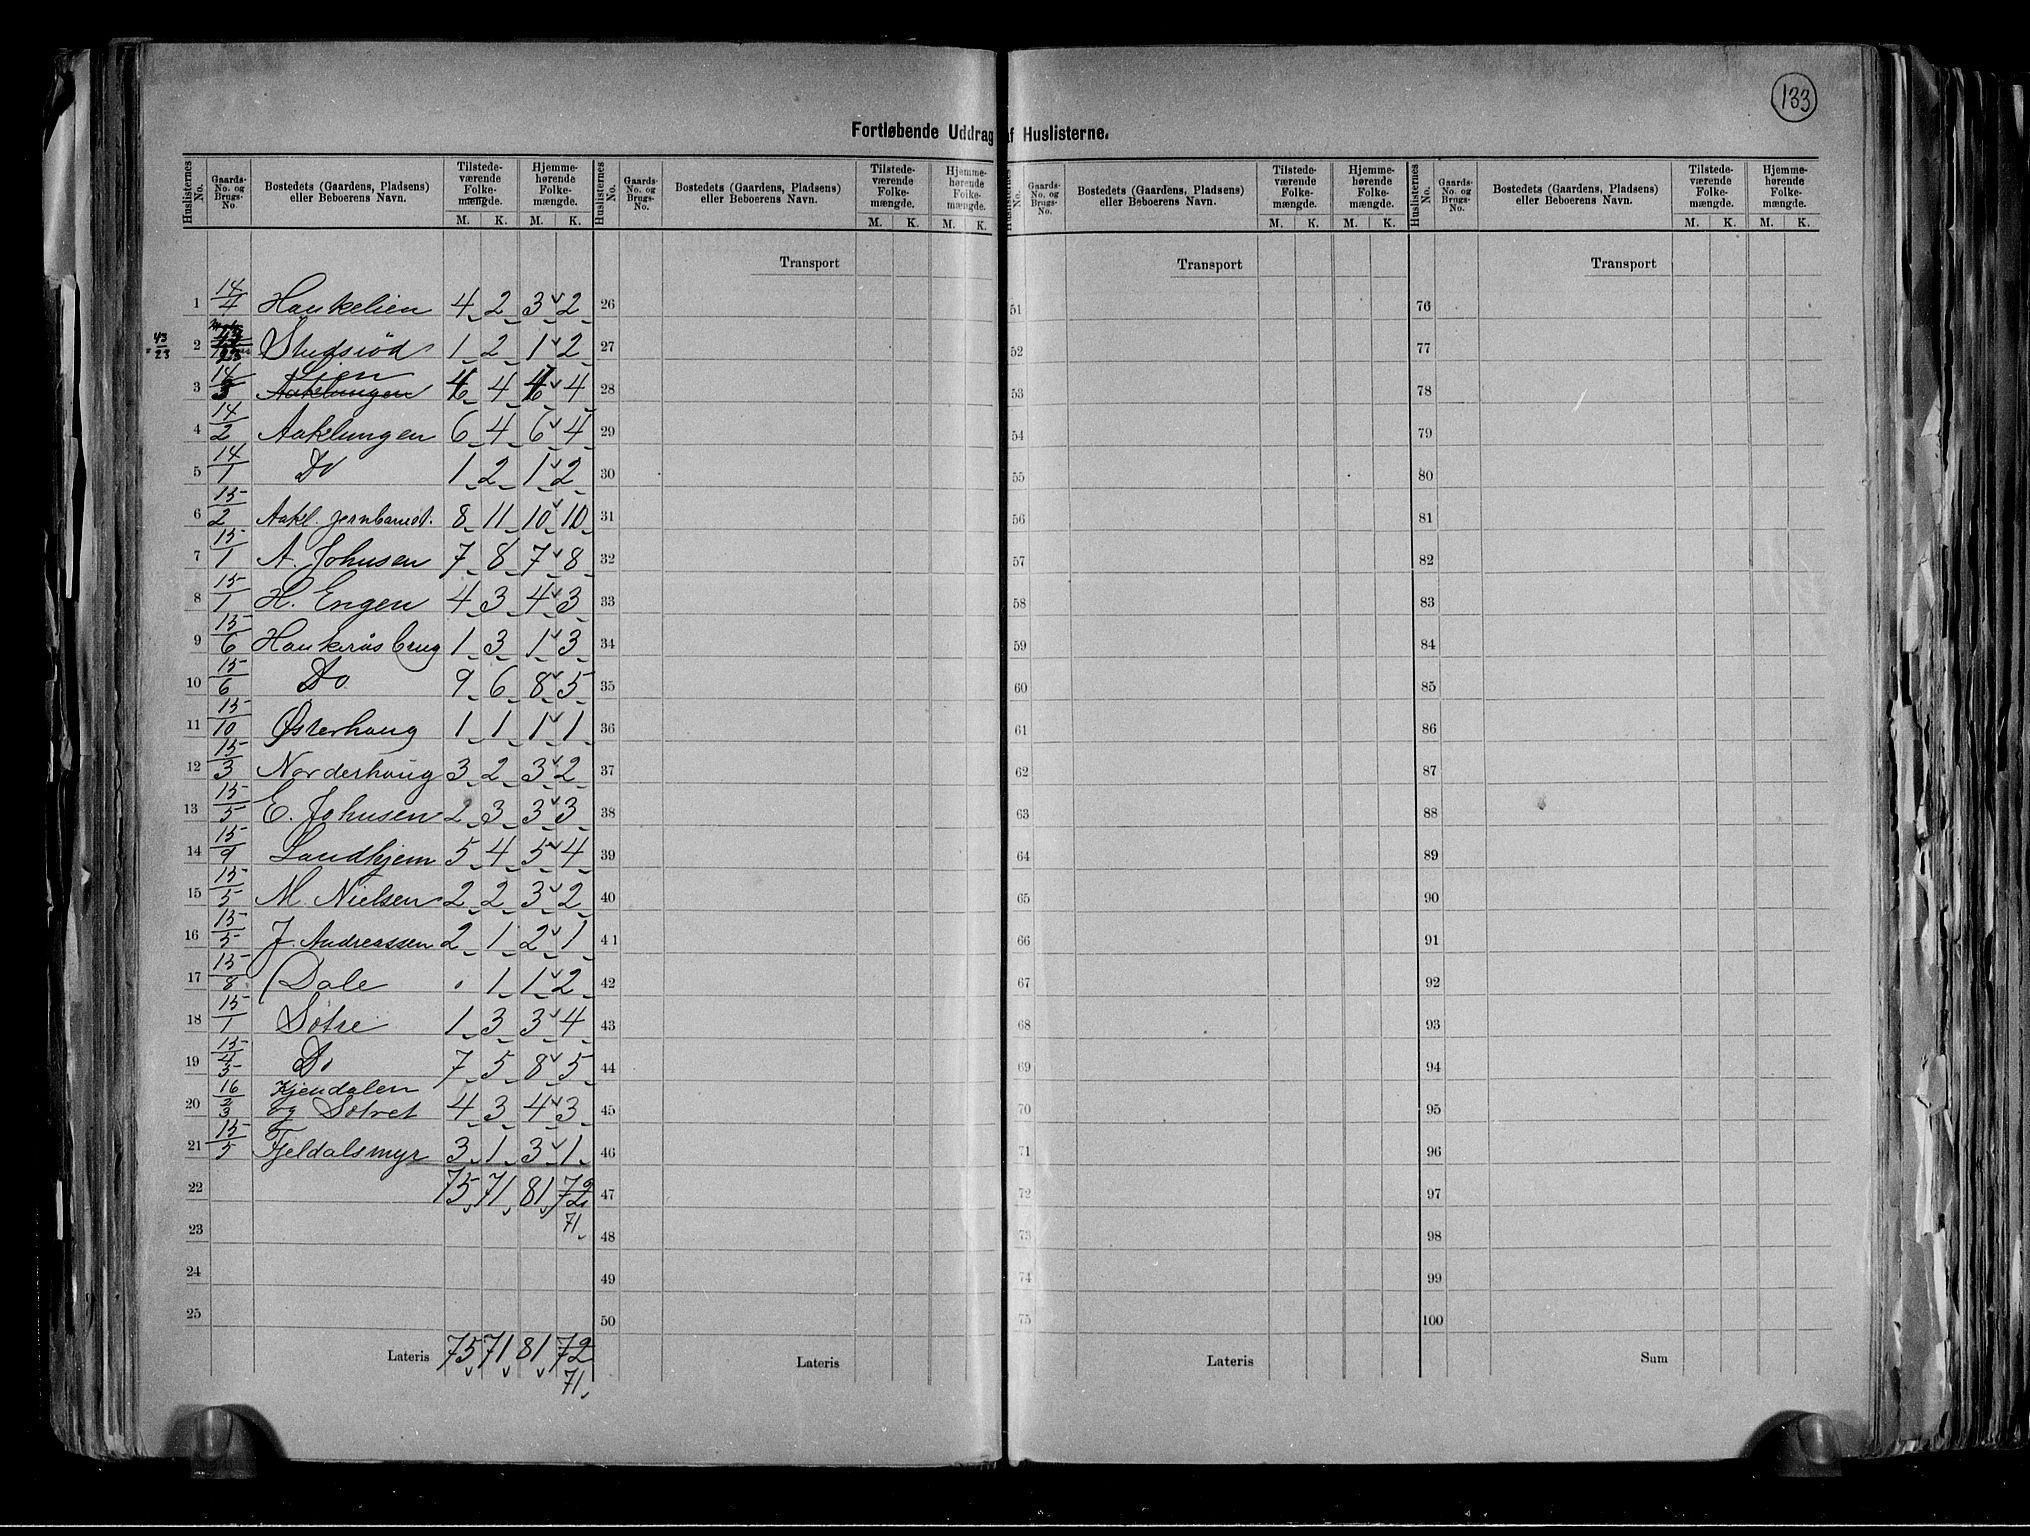 133
Fortløbende Uddrag af Huslisterne.
Huslisternes No. Gaards-No. og Brugs-No. Bostedets (Gaardens, Pladsens) eller Beboerens Navn. Tilstede-værende Folke-mængde. M. K. Hjemme-hørende Folke-mængde. M. K.
Huslisternes No. Gaards-No. og Brugs-No. Bostedets (Gaardens, Pladsens) eller Beboerens Navn. Tilstede-værende Folke-mængde. M. K. Hjemme-hørende Folke-mængde. M. K.
Huslisternes No. Gaards-No. og Brugs-No. Bostedets (Gaardens, Pladsens) eller Beboerens Navn. Tilstede-værende Folke-mængde. M. K. Hjemme-hørende Folke-mængde. M. K.
Huslisternes No. Gaards-No. og Brugs-No. Bostedets (Gaardens, Pladsens) eller Beboerens Navn. Tilstede-værende Folke-mængde. M. K. Hjemme-hørende Folke-mængde. M. K.
Transport Transport Transport
1 14/4 Haukelien 4 2 3 2 26 51 76
43/23 2 Studsrød 1 2 1 2 27 52 77
3 14/3 Aaklungen 4 4 4 4 28 53 78
4 14/2 Aaklungen 6 4 6 4 29 54 79
5 14/1 Do 1 2 1 2 30 55 80
6 15/2 Aakl. jernbanest. 8 11 10 10 31 56 81
7 15/1 A. Johnsen 7 8 7 8 32 57 82
8 15/1 H. Engen 4 3 4 3 33 58 83
9 15/6 Haukerøs brug 1 3 1 3 34 59 84
10 15/6 Do 9 6 8 5 35 60 85
11 15/10 Østerhaug 1 1 1 1 36 61 86
12 15/3 Norderhaug 3 2 3 2 37 62 87
13 15/5 E. Johnsen 2 3 3 3 38 63 88
14 15/9 Landhjem 5 4 5 4 39 64 89
15 15/5 M. Nielsen 2 2 3 2 40 65 90
16 15/5 J. Andreassen 2 1 2 1 41 66 91
17 15/8 Dale 1 1 2 42 67 92
18 15/1 Søtre 1 3 3 4 43 68 93
19 15/4 5 Do 7 5 8 5 44 69 94
20 16/2 3 Kjendalen og Søtret 4 3 4 3 45 70 95
21 15/5 Fjeldalsmyr 3 1 3 1 46 71 96
22 75 71 81 72 47 72 97
23 71 48 73 98
24 49 74 99
25 50 75 100
Lateris 75 71 81 72 Lateris Lateris Sum
71